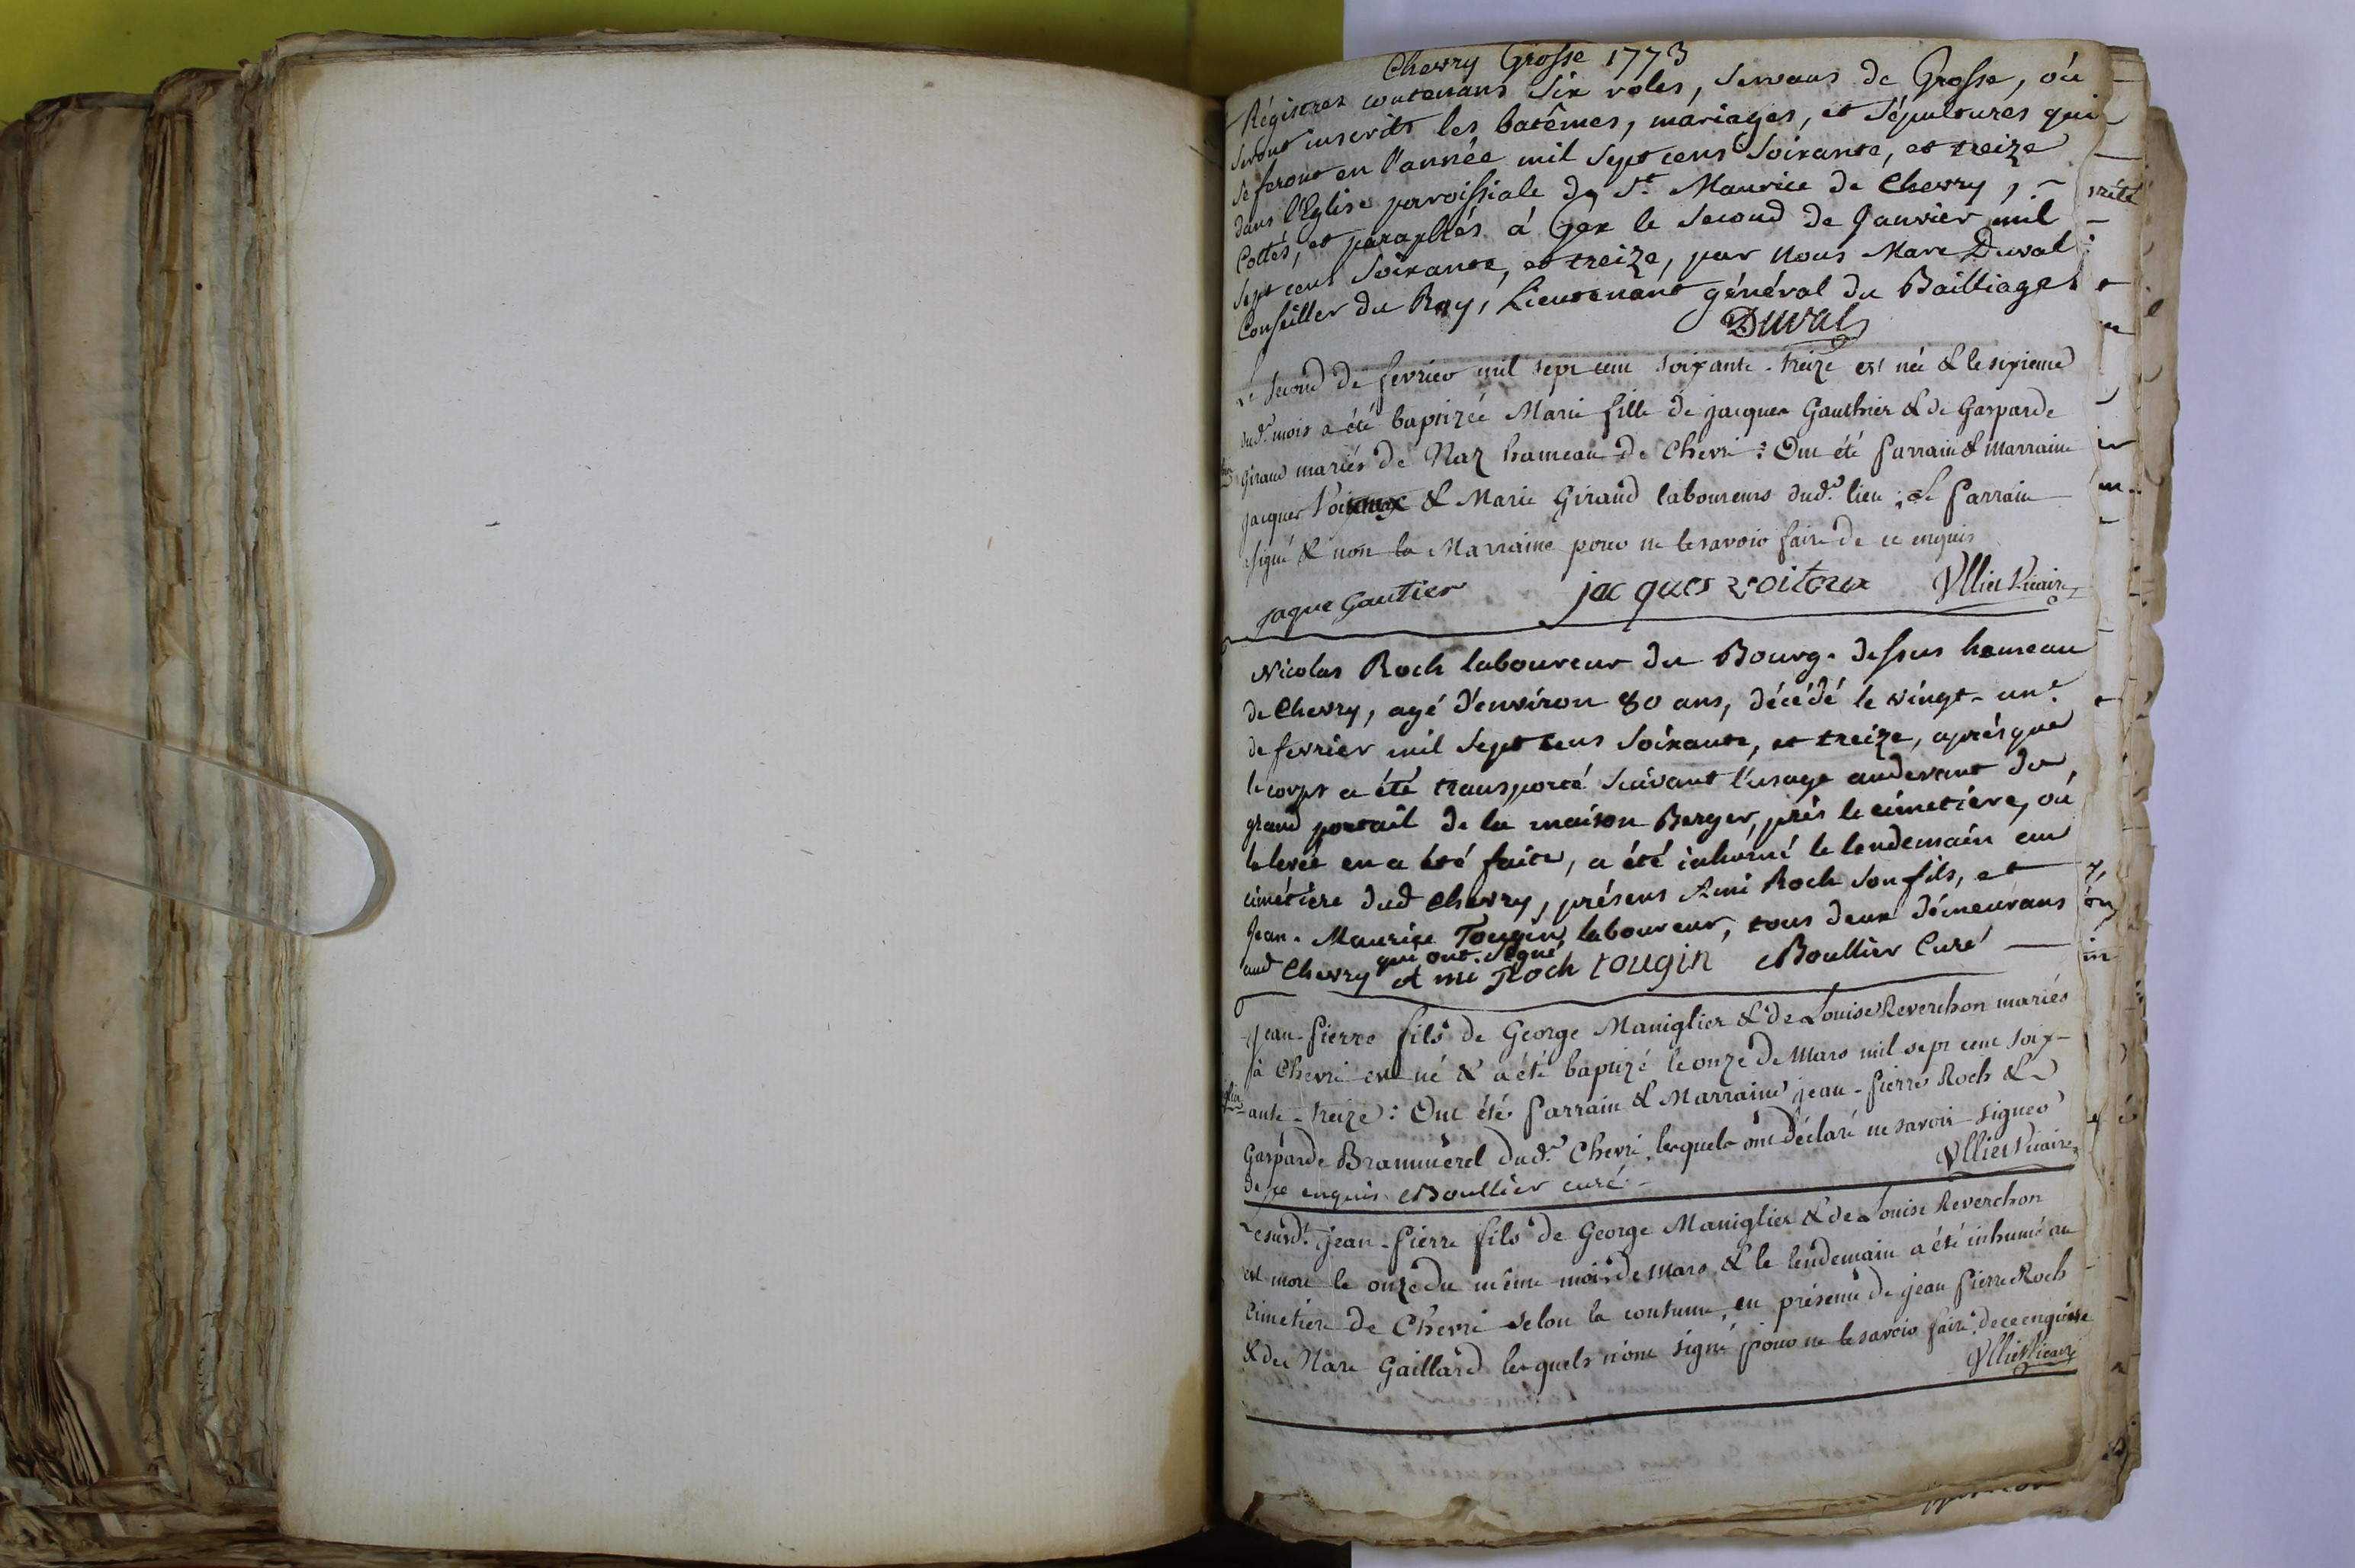 Chevry Grosse 1773
Régistres contenans Six roles, Servans de Grosse, où
seront inscrits les batêmes, mariages, et sépultures qui
se feront en l'année mil Sept cens Soixante, et treize
dans l'Eglise paroissiale de St. Maurice de Chevry,
Cottés, et paraphés à Gex le Second de Janvier mil
Sept cens Soixante, et treize, par Nous Marc Duval
Conseiller du Roy, Lieutenant général du Bailliage.
Duval
Le second de fevrier mil sept cent soixante-treize est née & le sixieme
dud. mois a été baptizée Marie fille de jacques Gauthier & de Gasparde
Giraud mariés de Naz hameau de Chevri : Ont été Parrain & Marraine
jacques Voitoux & Marie Giraud laboureurs dud. lieu ; Le Parrain
signé & non la Marraine pour ne le savoir faire de ce enquis
jaque Gautier jacques voitoux Ulliet Vicaire
Nicolas Roch laboureur du Bourg-dessus hameau
de Chevry, agé d'environ 80 ans, décédé le vingt-un.e
de fevrier mil Sept cens Soixante, et treize, après que
le corps a été transporté Suivant l'usage audevant du
grand portail de la maison Berger, près le cimetière, où
la levée en a été faite, a été inhumé le lendemain au
cimétière dud Chevry, présens Ami Roch Son fils, et
Jean-Maurice Tougin laboureur, tous deux démeurans
aud Chevry qui ont Signé
Ami Roch tougin Boullier Curé
jean-Pierre fils de George Maniglier & de Louise Reverchon mariés
à Chevri est né & a été baptizé le onze de Mars mil sept cent soix-
ante-treize : Ont été Parrain & Marraine jean-Pierre Roch &
Gasparde Brammerel dud. Chevri, lesquels ont déclaré ne savoir signer
de ce enquis. Boullier curé Ulliet Vicaire
Lesusd. jean-Pierre fils de George Maniglier & de Louise Reverchon
est mort le onze du même mois de Mars & le lendemain a été inhumé au
Cimetiere de Chevri selon la coutume, en présence de jean Pierre Roch
& de Marc Gaillard lesquels n'ont signé pour ne le savoir faire de ce enquis
Ulliet Vicaire